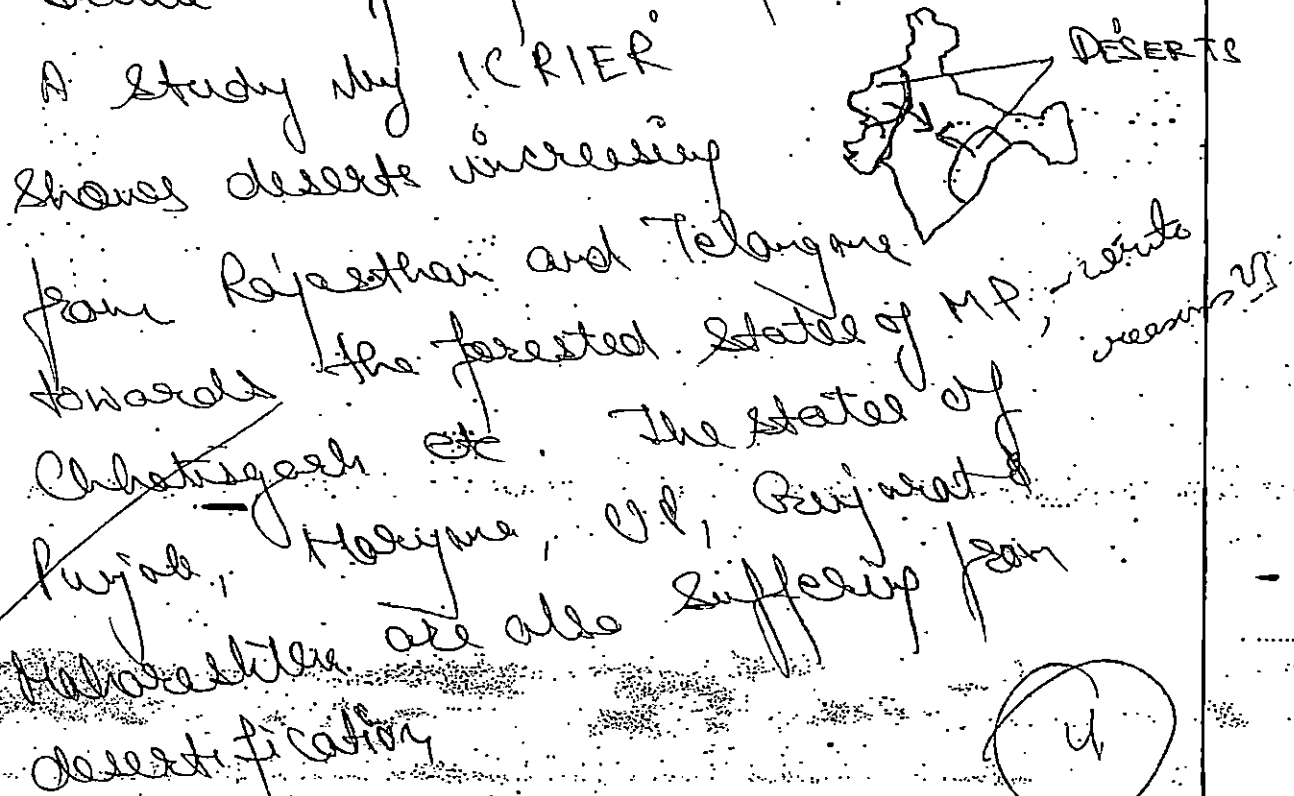 A study by ICRIER
DESERTS
shows deserts increasing
from Rajasthan and Telangana
towards the forested states of MP,
write reasons
Chhattisgarh etc. The states of
Punjab, Haryana, UP, Gujarat &
Maharashtra are also suffering from
desertification
4